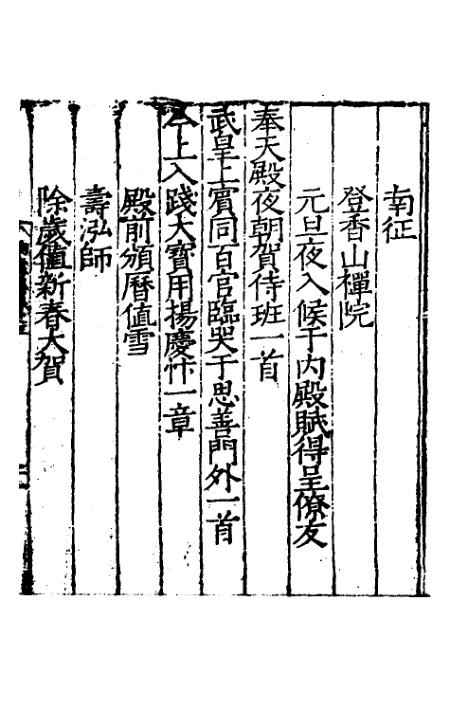 南征
登香山禪院
元旦夜入候于内殿賦得呈僚友
奉天殿夜朝賀侍班一首
武皇上賓同百官臨哭于思善門外一首
今上入踐大寶用揚慶忭一章
殿前頒曆值雪
壽泓師
除歲值新春大賀